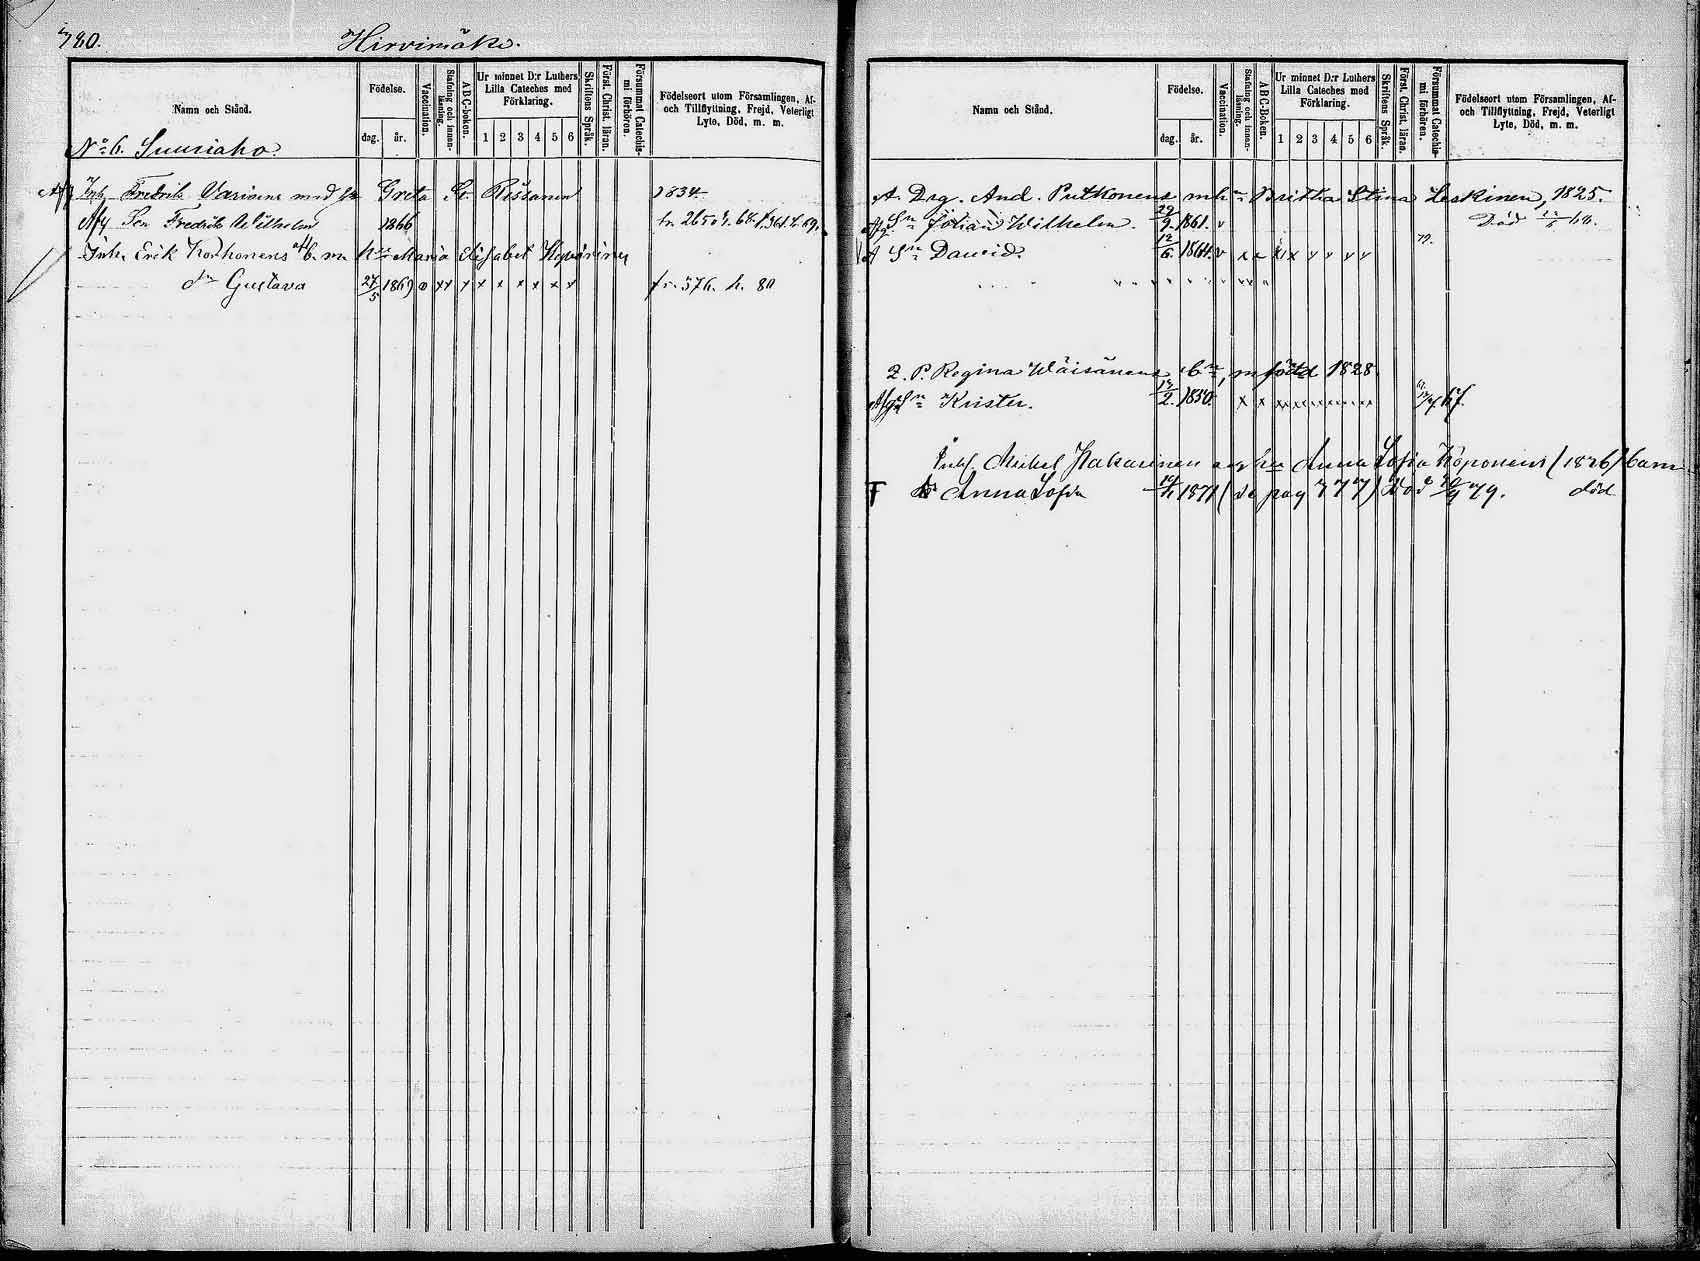 780.
Hirvimäki.
Namn och Stånd.
Födelse.
dag. år.
Vaccination.
Stafning och innanläsning.
ABC-Boken.
Ur minnet D:r Luthers Lilla Cateches med Förklaring.
1 2 3 4 5 6
Skriftens Språk.
Först. Christ. läran.
Försummat Catechismi förhören.
Födelseort utom Församlingen, Af- och Tillflyttning, Frejd, Veterligt Lyte, Död, m. m.
No 6. Suuriaho.
Inh. Fredrik med Greta Rissanen 1834
Afg Son Fredrik Wilhelm 1866
Inh. Erik Korhonens b. m. hu Maria Elisabet
dr Gustava 27/5 1869 v xx x x x x x x x fr. 576. h. 80
Namn och Stånd.
Födelse.
dag. år.
Vaccination.
Stafning och innanläsning.
ABC-Boken.
Ur minnet D:r Luthers Lilla Cateches med Förklaring.
1 2 3 4 5 6
Skriftens Språk.
Först. Christ. läran.
Försummat Catechismi förhören.
Födelseort utom Församlingen, Af- och Tillflyttning, Frejd, Veterligt Lyte, Död, m. m.
A. Drg. And. Putkonens m h n Britha Stina Leskinen, 1825.
Sn Johan Wilhelm. 29/9. 1861. v Död
A Sn Dawid. 12/6. 1864. v x x x x x x x x
2. P. Regina Wäisänens bn, född 1828.
Sn Krister. 13/2. 1850. x x
Inh. Michel Hakarinen Anna Sofia Koponens (1826) barn
F Dr Anna Sofia 1871 (se pag 777) död 79. död